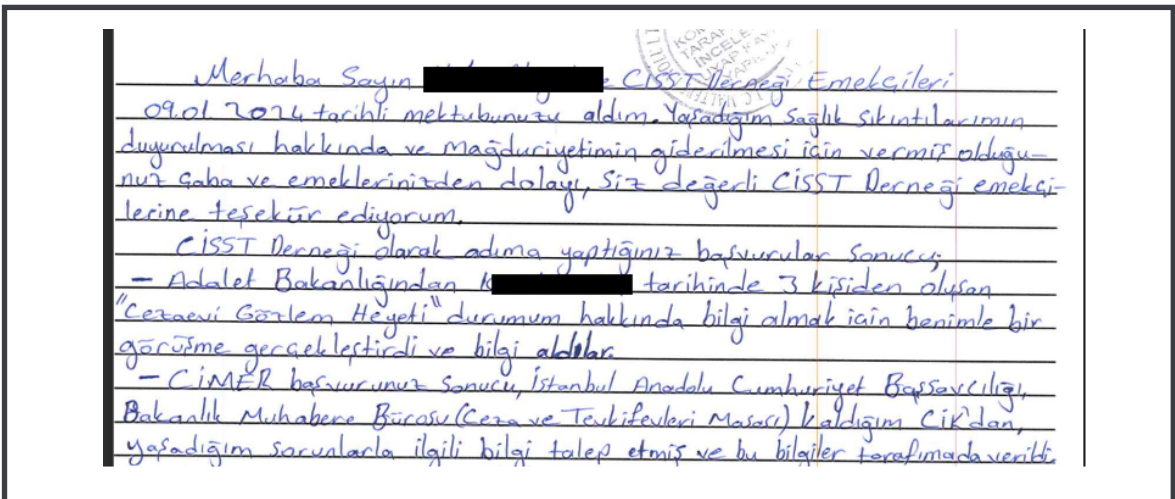 Merhaba Sayın CİSST Derneği Emekçileri
09.01.2024 tarihli mektubunuzu aldım. Yaşadığım Sağlık Sıkıntılarımın
duyurulması hakkında ve mağduriyetimin giderilmesi için vermiş olduğu-
nuz çaba ve emeklerinizden dolayı, Siz değerli CİSST Derneği emekçi-
lerine teşekür ediyorum.
CİSST Derneği olarak adıma yaptığınız başvurular Sonucu;
- Adalet Bakanlığından tarihinde 3 kişiden oluşan
"Cezaevi Gözlem Heyeti" durumum hakkında bilgi almak için benimle bir
görüşme gerçekleştirdi ve bilgi aldılar.
- CİMER başvurunuz Sonucu, İstanbul Anadolu Cumhuriyet Başsavcılığı,
Bakanlık Muhabere Bürosu (Ceza ve Tevkifevleri Masası) kaldığım CİK'dan,
yaşadığım sorunlarla ilgili bilgi talep etmiş ve bu bilgiler tarafımada verildi.